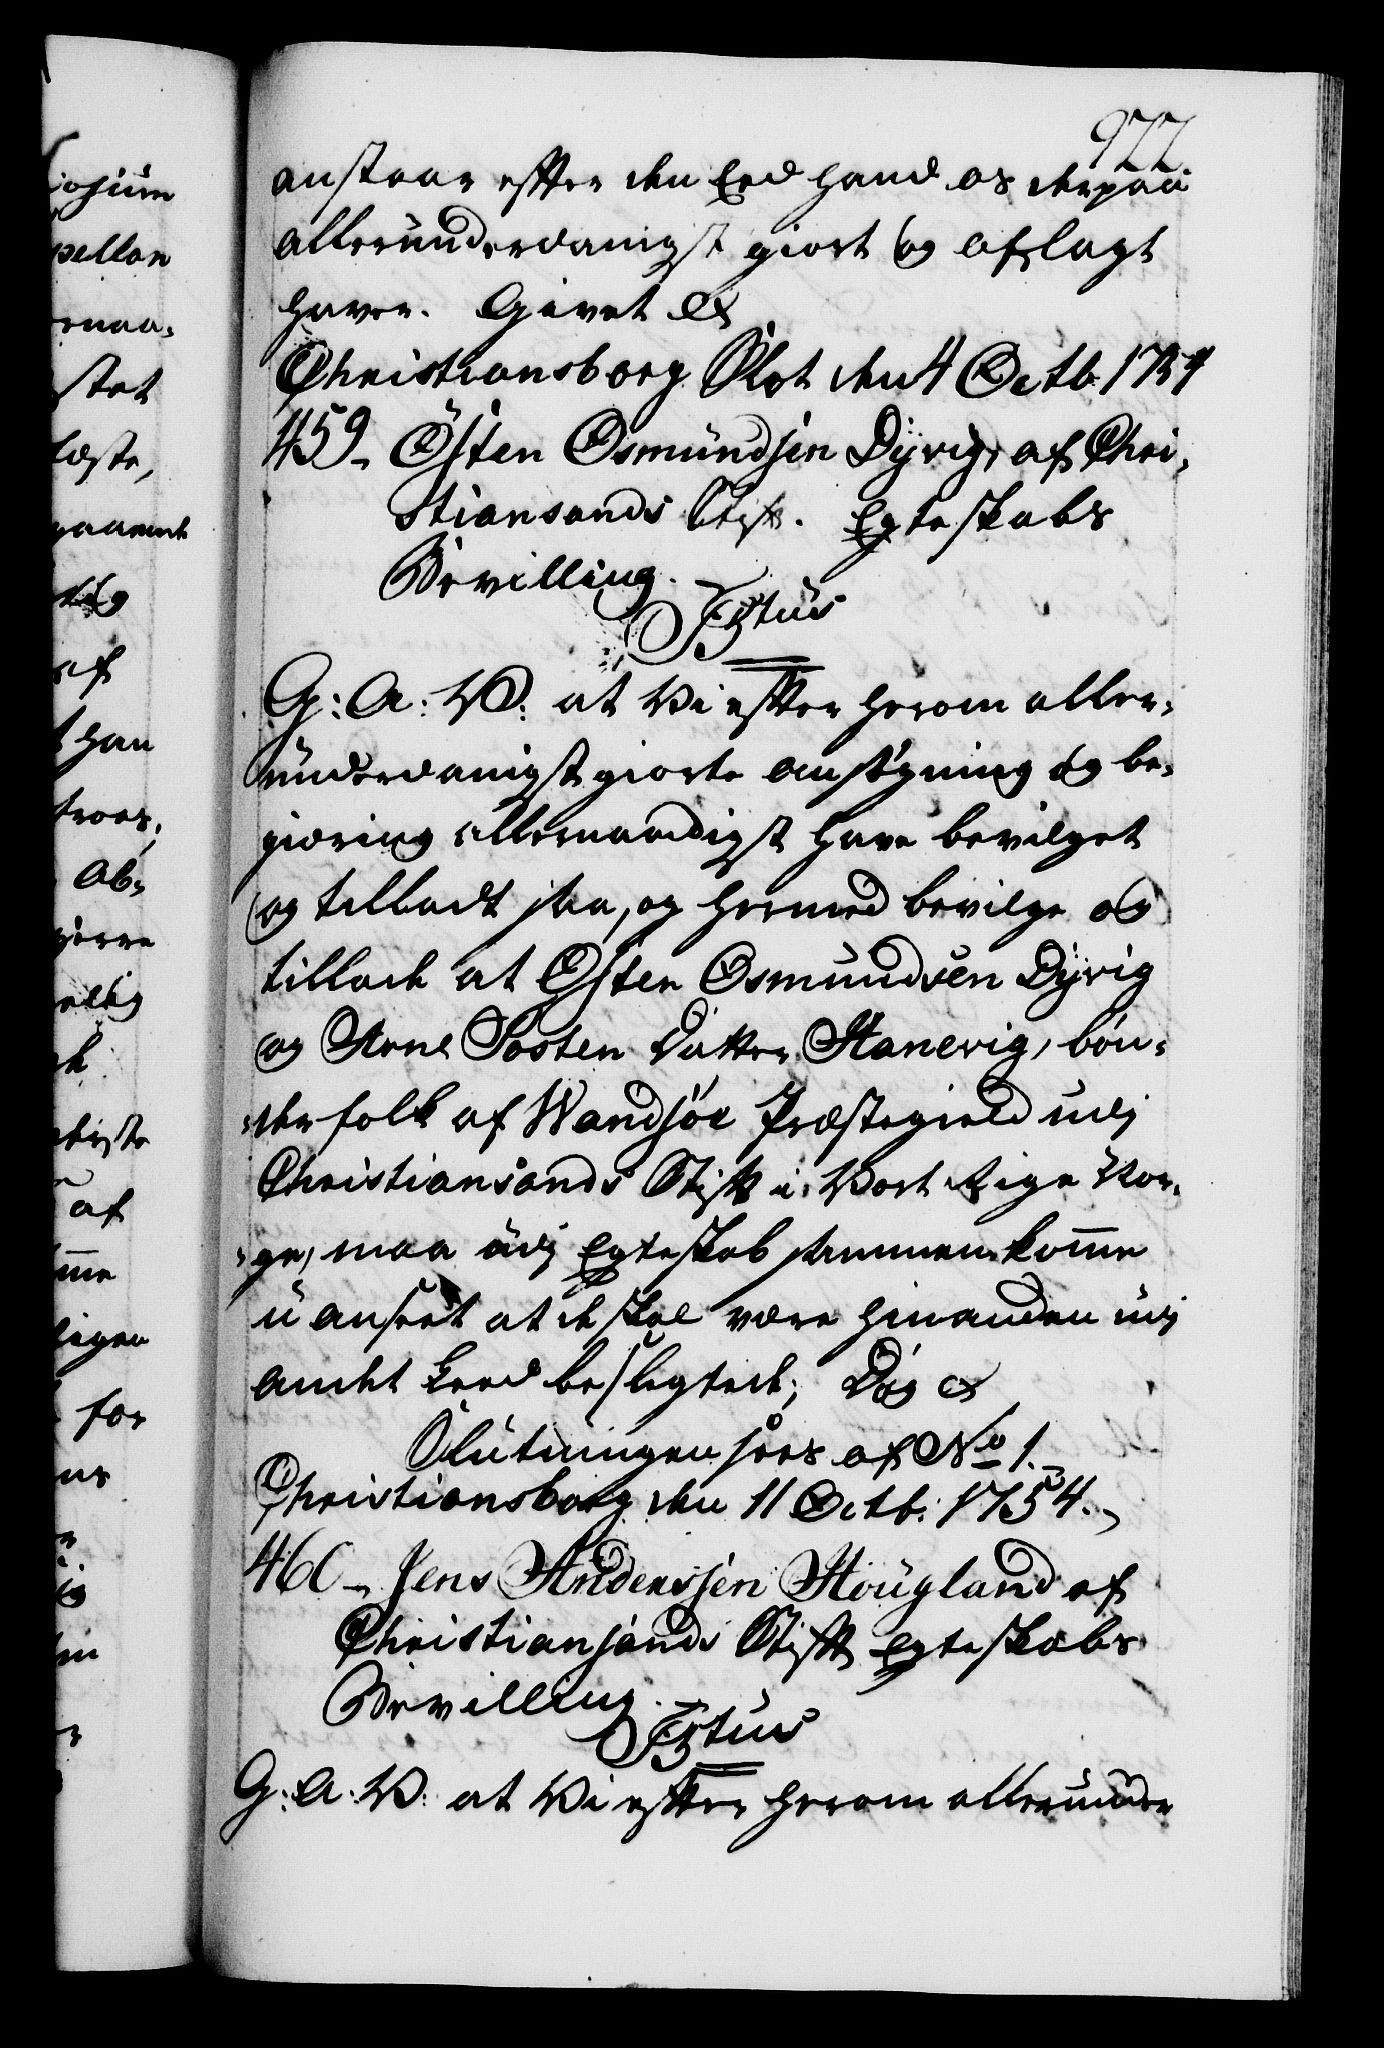 977
anstaar efter den Eed hand os derpaa
allerunderdanigst giort og aflagt
haver. Givet &
Christiansborg Slot den 4 Octb. 1754
459. Østen Osmundsen Dyrvig, af Chri-
stiansands Stift. Egteskabs
Bevilling.
Fr. 5tus
G: A: V: at Vi efter herom aller-
underdanigst giorte ansøgning og be-
giæring allernaadigst have bevilget
og tilladt saa, og hermed bevilge og
tillade at Østen Osmundsen Dyrvig
og Arne Tosten Datter Stanevig, bøn-
der folk af Wandsøe Præstegield udj
Christiansands Stift i Vort Rige Nor-
ge, maa udj Egteskab sammenkomme
uanseet at de skal være hinanden udj
andet Leed beslegtede; Dog &
Slutningen sees af No 1.
Christiansborg den 11 Octb. 1754.
460. Jens Andersen Hougland af
Christiansands Stift Egteskabs
Bevilling.
Fr. 5tus
G: A: V: at Vi efter herom allerunder